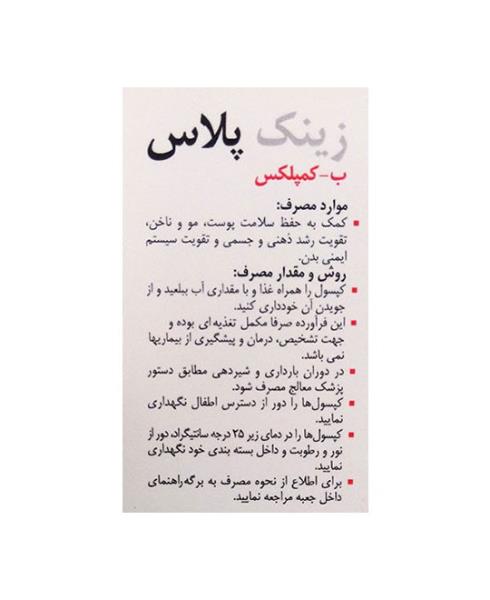 زینک پلاس
ب-کمپلکس
موارد مصرف:
▪ کمک به حفظ سلامت پوست، مو و ناخن،
تقویت رشد ذهنی و جسمی و تقویت سیستم
ایمنی بدن.
روش و مقدار مصرف:
▪ کپسول را همراه غذا و با مقداری آب ببلعید و از
جویدن آن خودداری کنید.
▪ این فرآورده صرفا مکمل تغذیه‌ای بوده و
جهت تشخیص، درمان و پیشگیری از بیماریها
نمی باشد.
▪ در دوران بارداری و شیردهی مطابق دستور
پزشک معالج مصرف شود.
▪ کپسول‌ها را دور از دسترس اطفال نگهداری
نمایید.
▪ کپسول‌ها را در دمای زیر ۲۵ درجه سانتیگراد، دور از
نور و رطوبت و داخل بسته بندی خود نگهداری
نمایید.
▪ برای اطلاع از نحوه مصرف به برگه راهنمای
داخل جعبه مراجعه نمایید.